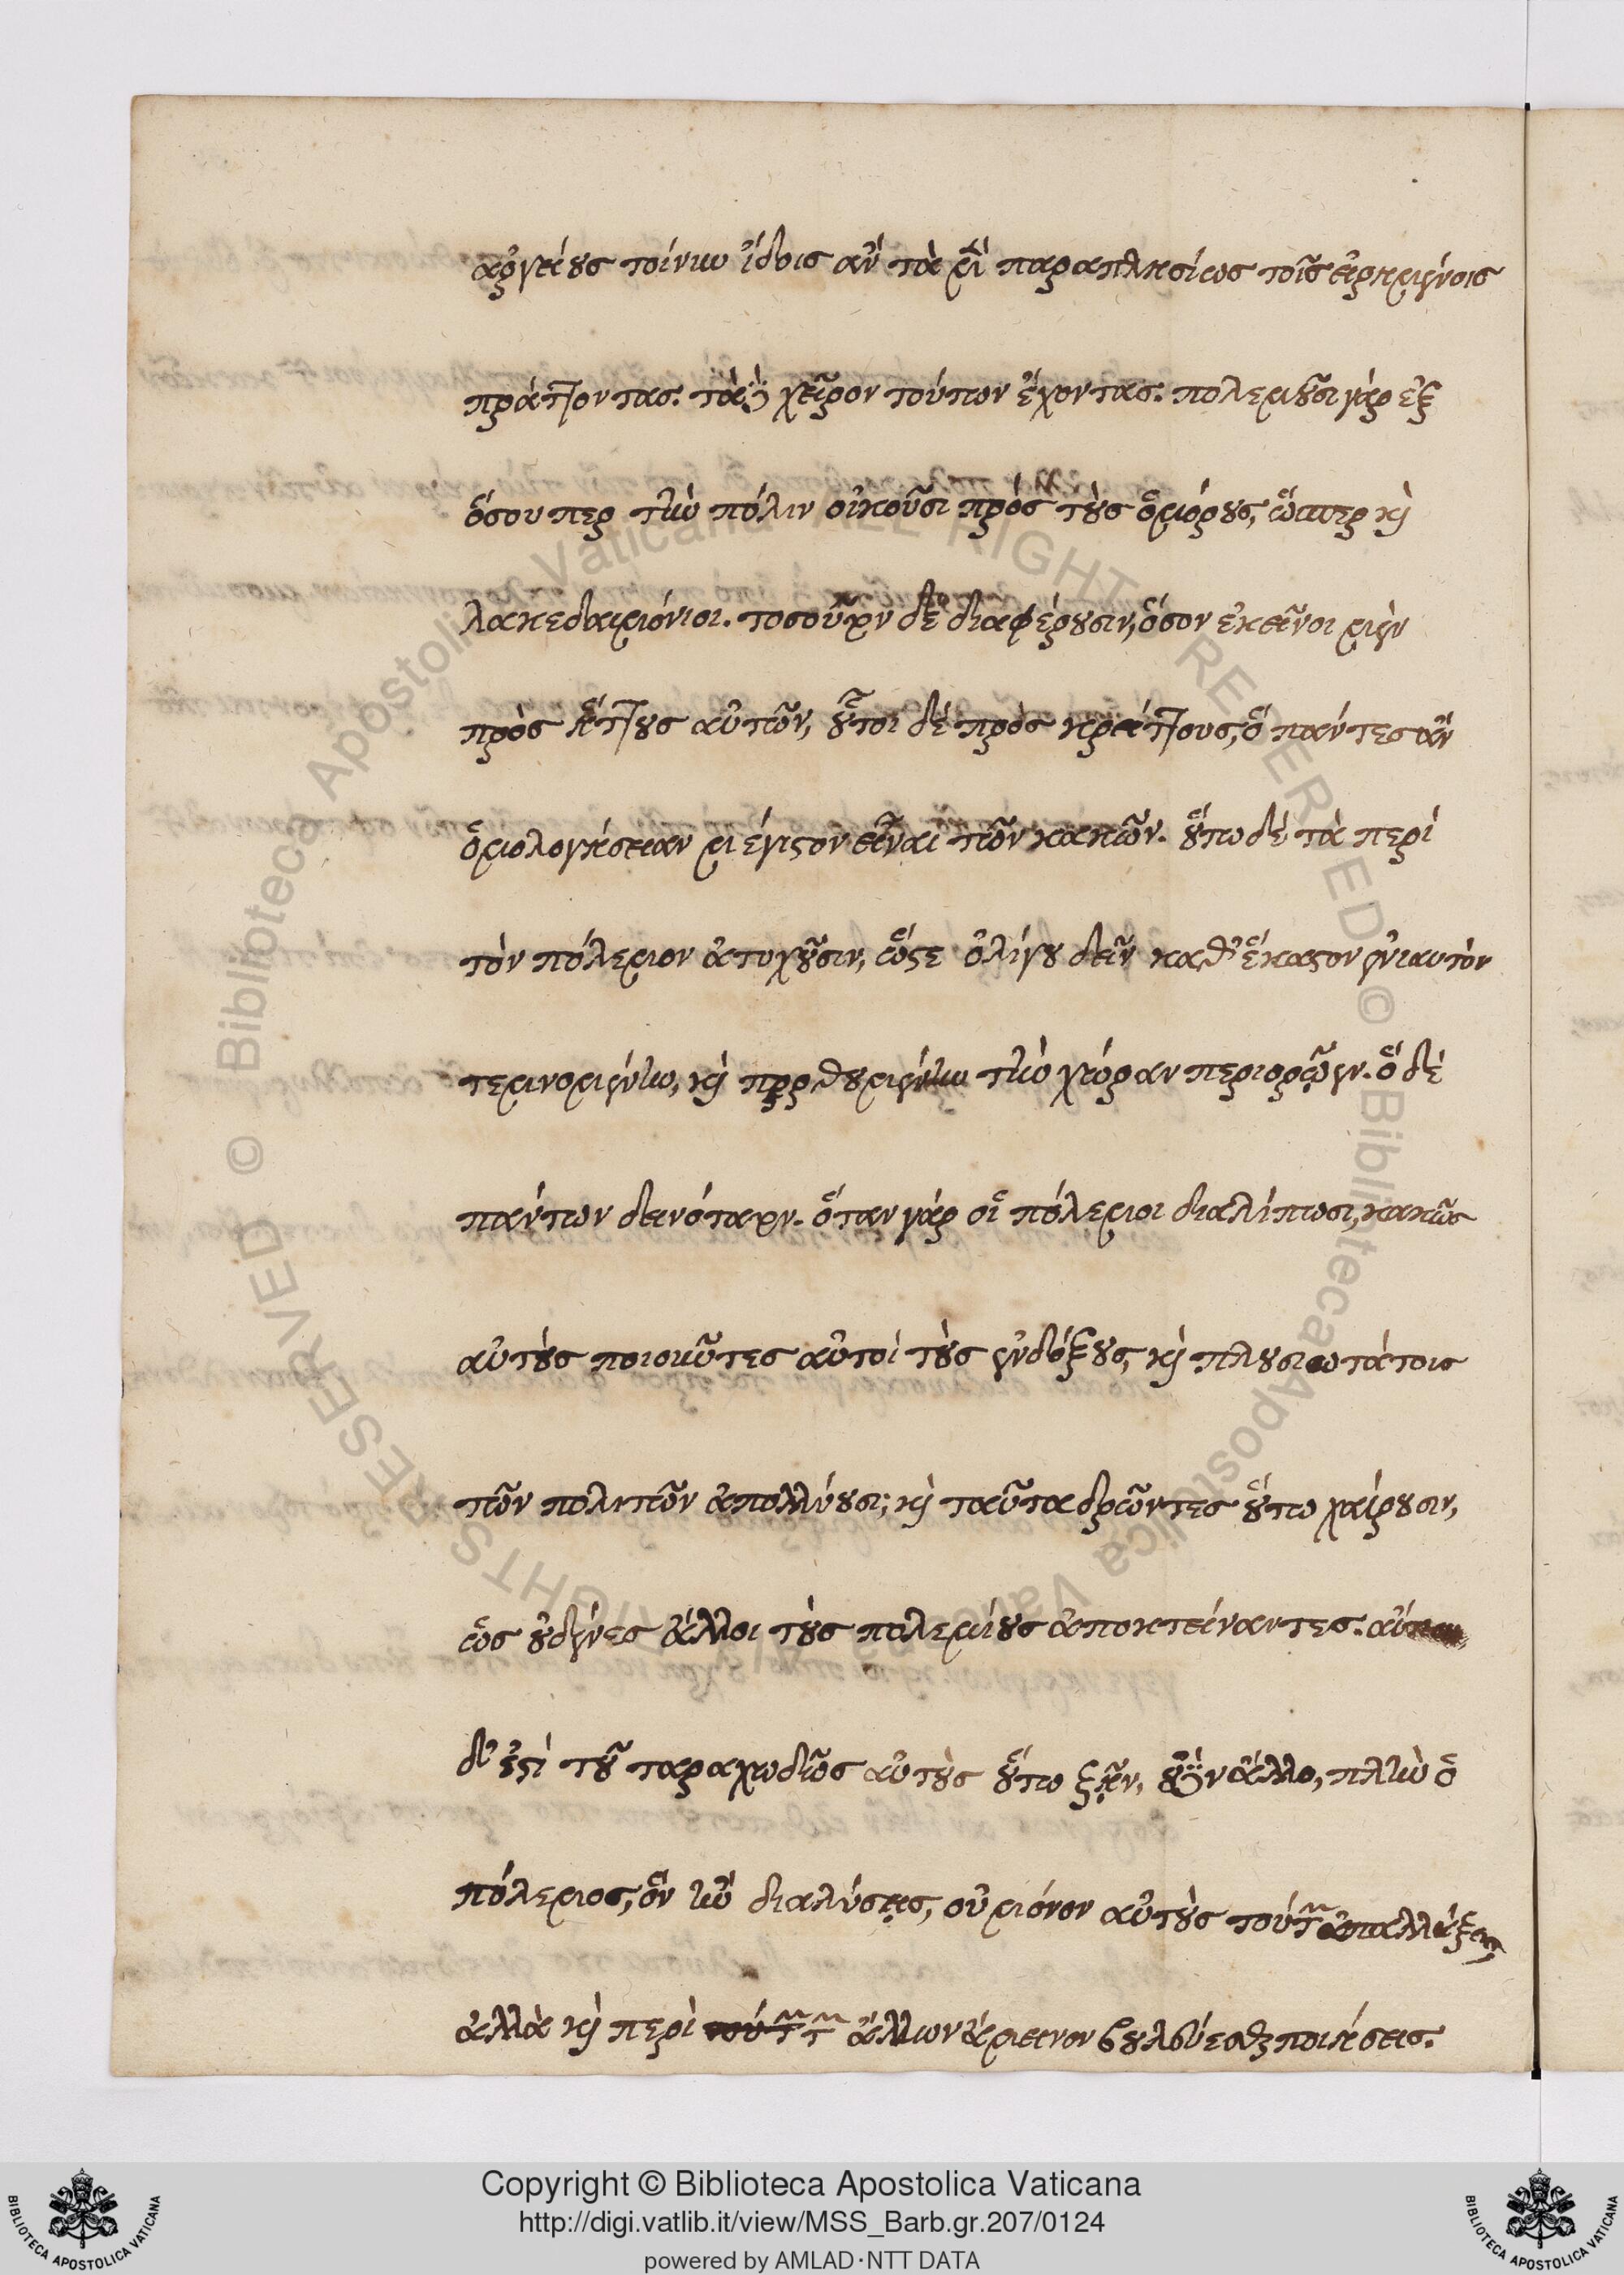 ἀργείους τοίνυν ἴδοις ἂν τὰ μὲν παραπλησίως τοῖς εἰρημένοις
πράττοντας. τὰ δὲ χεῖρον τούτων ἔχοντας. πολεμοῦσι γὰρ ἐξ
ὅσου περ τὴν πόλιν οἰκοῦσι πρὸς τοὺς ὁμόρους, ὥσπερ καὶ
λακεδαιμόνιοι. τοσοῦτον δὲ διαφέρουσιν, ὅσον ἐκεῖνοι μὲν
πρὸς ἥττους αὐτῶν, οὗτοι δὲ πρὸς κρείττους, ὃ πάντες ἂν
ὁμολογήσειαν μέγιστον εἶναι τῶν κακῶν. οὕτω δὲ τὰ περὶ
τὸν πόλεμον ἀτυχοῦσιν, ὥστε ὀλίγου δεῖν καθ' ἕκαστον ἐνιαυτὸν
τεμνομένην, καὶ πορθουμένην τὴν χώραν περιορῶσιν. ὃ δὲ
πάντων δεινότατον. ὅταν γὰρ οἱ πόλεμοι διαλίπωσι, κακῶς
αὐτοὺς ποιοῦντες αὐτοὶ τοὺς ἐνδόξους, καὶ πλουσιωτάτοις
τῶν πολιτῶν ἀπολλύουσι; καὶ ταῦτα δρῶντες οὕτω χαίρουσιν,
ὡς οὐδένες ἄλλοι τοὺς πολεμίους ἀποκτείναντες.
δ' ἐστὶ τοῦ ταραχωδῶς αὐτοὺς οὕτω ζῆν, οὐδὲν ἄλλο, πλὴν ὁ
πόλεμος, ὃν ἢν διαλύσῃς, οὐ μόνον αὐτοὺς τούτων ἀπαλλάξεις
ἀλλὰ καὶ περὶ τούτων τῶν ἄλλων ἄμεινον βουλεύεσθαι ποιήσεις.
Copyright © Biblioteca Apostolica Vaticana
http://digi.vatlib.it/view/MSS_Barb.gr.207/0124
powered by AMLAD·NTT DATA